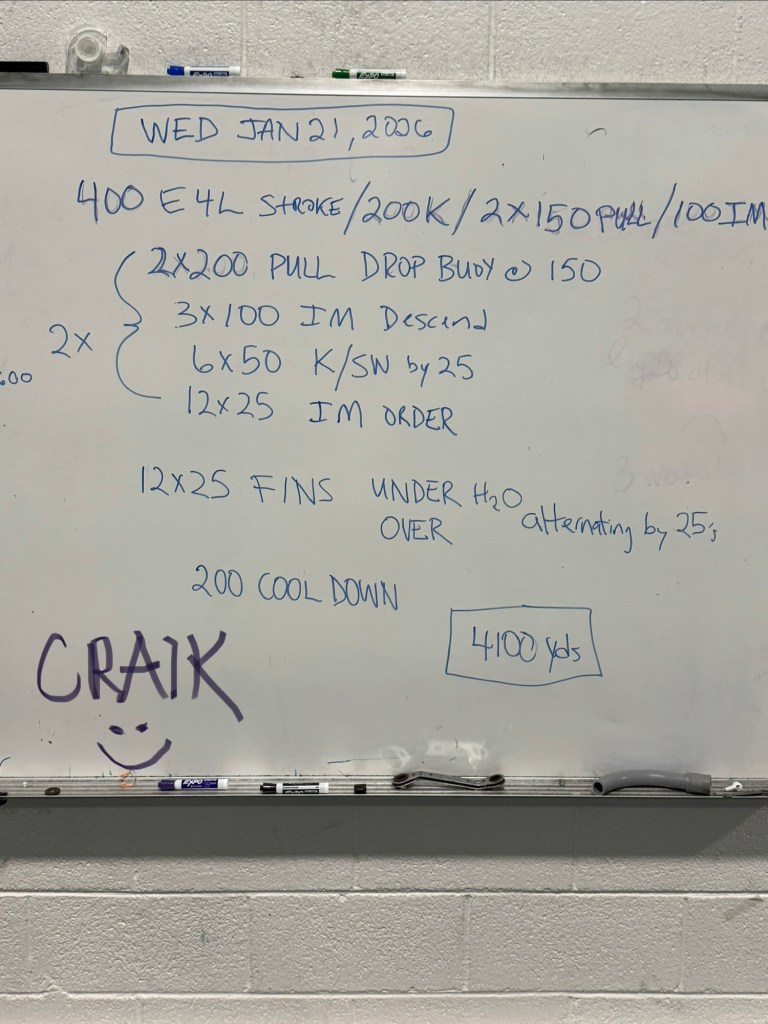 WED JAN 21, 2026
400 E4L STROKE/200K/2X150 PULL/100 IM
2X200 PULL DROP BUOY @ 150
3X100 IM Descend
2X
6X50 K/SW by 25
600
12X25 IM ORDER
12X25 FINS UNDER H2O
OVER alternating by 25s
200 COOL DOWN
4100 yds
CRAIK
EXPO
EXPO
EXPO